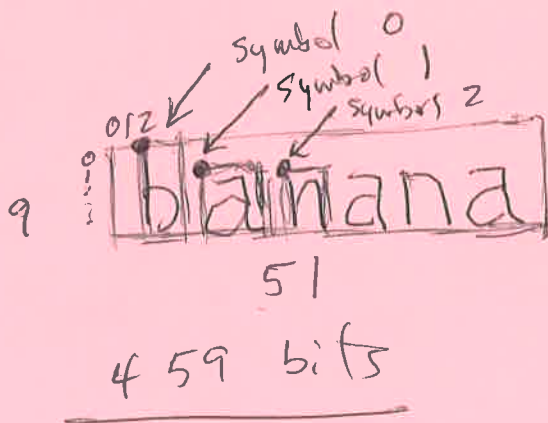 symbol 0
symbol 1
symbols 2
012
0
9
banana
51
459 bits